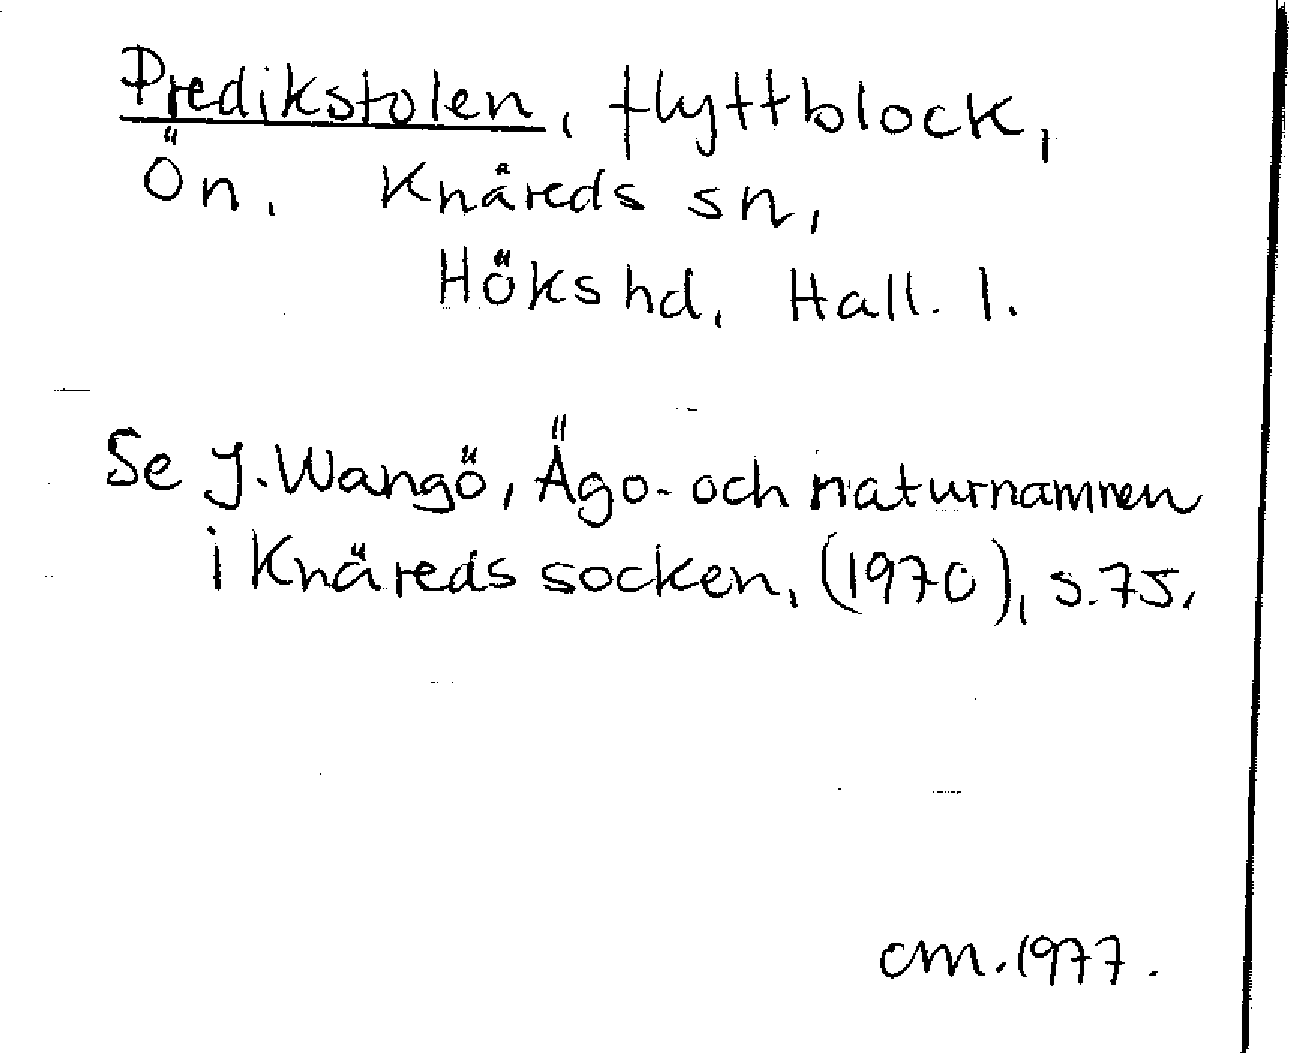 Predikstolen, flyttblock,
Ön. Knäreds sn,
Höks hd, Hall. l.
Se J. Wangö, Ägo- och naturnamnen
i Knäreds socken, (1970), s. 75.
cm. 1977.